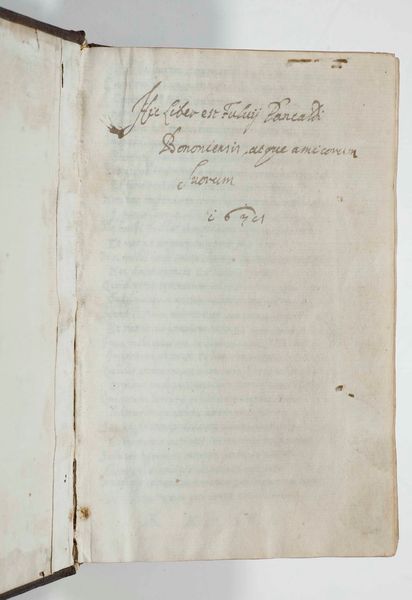 Hic Liber est Fuluij Pancaldi
Bononiensis, atque amicorum
suorum